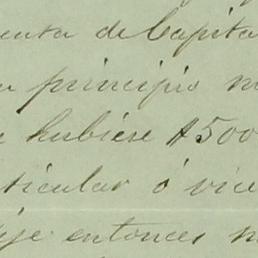 enta de Capita
u principio m
hubiese $500
ticular ó vice
ije entonces